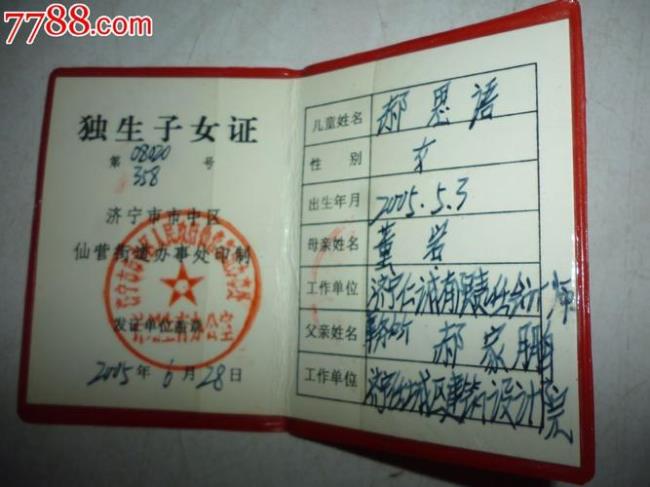 7788.com
独生子女证
第 08020
358 号
济宁市市中区
仙营街道办事处印制
发证单位盖章
2005 年 6 月 28 日
儿童姓名 郝恩语
性别 女
出生年月 2005.5.3
母亲姓名 董岩
工作单位 济宁仁诚有限责任会计师
事务所
父亲姓名 郝家鹏
工作单位 城区建筑设计院